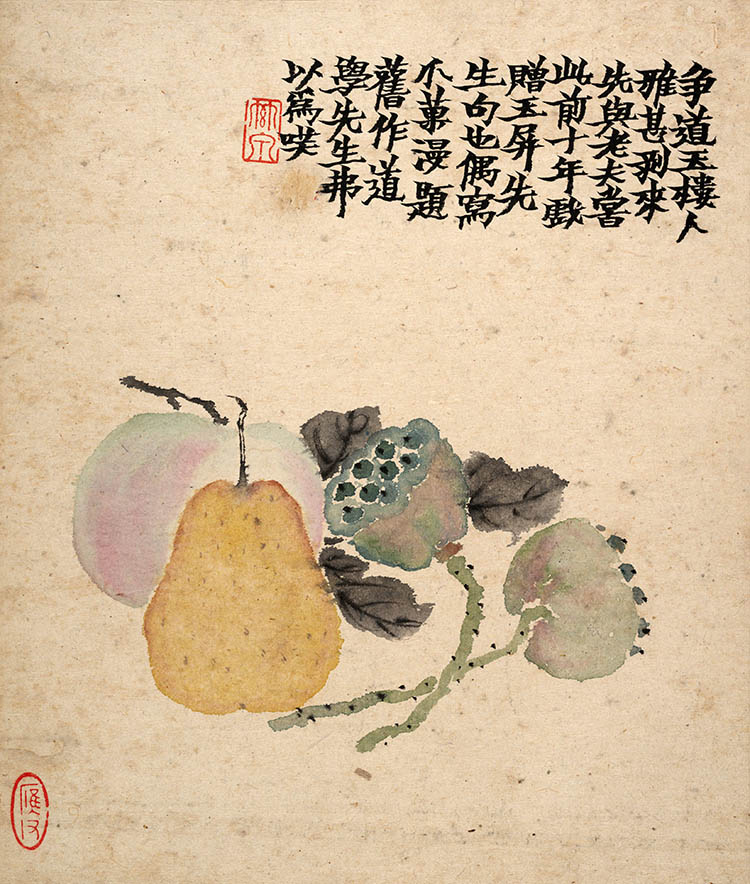 争道玉樓人
雅甚到來
先與老夫嘗
此前十年戲
贈玉屏先
生句也偶寫
菓漫題
舊作道
學先生弗
以爲咲